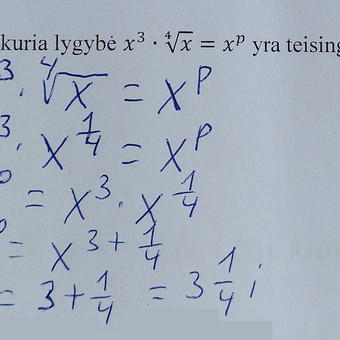 kuria lygybė x³ · ⁴√x = xᵖ yra teising
³ · ⁴√x = xᴾ
³ · x^(1/4) = xᴾ
ᵖ = x³ · x^(1/4)
= x^(3 + 1/4)
= 3 + 1/4 = 3 1/4 i